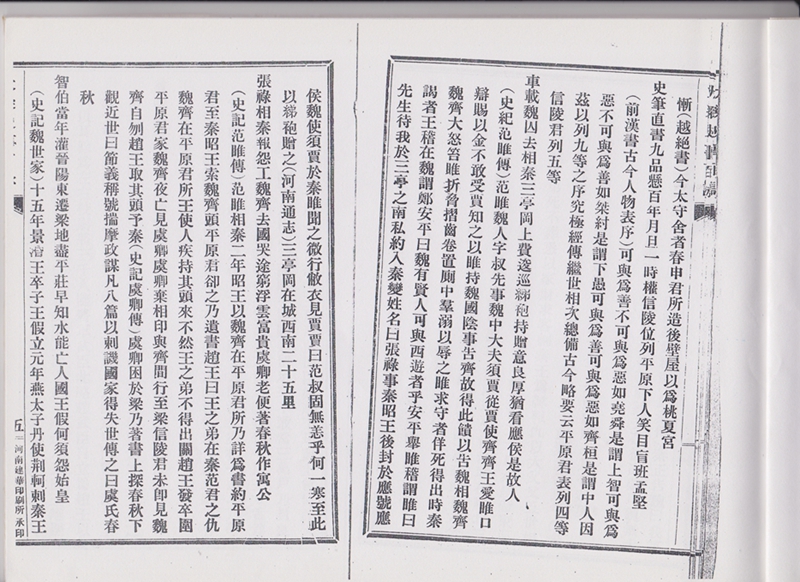 慚(越絕書)今太守舍者春申君所造後壁屋以爲桃夏宮
史筆直書九品懸百年月旦一時權信陵位列平原下人笑目盲班孟堅
(前漢書古今人物表序)可與爲善不可與爲惡如堯舜是謂上智可與爲
惡不可與爲善如桀紂是謂下愚可與爲善可與爲惡如齊桓是謂中人因
茲以列九等之序究極經傳繼世相次總備古今略要云平原君表列四等
信陵君列五等
車載魏囚去相秦三亭岡上費逡巡綈袍持贈意良厚猶看應侯是故人
(史紀范睢傳)范睢魏人字叔先事魏中大夫須賈從賈使齊齊王愛睢口
辯賜以金不敢受賈知之以睢持魏國陰事告齊故得此饋以告魏相魏齊
魏齊大怒笞睢折脅摺齒卷置厠中羣溺以辱之睢求守者佯死得出時秦
謁者王稽在魏謂鄭安平曰魏有賢人可與西遊者乎安平舉睢稽謂睢曰
先生待我於三亭之南私約入秦變姓名曰張祿事秦昭王後封於應號應
侯魏使須賈於秦睢聞之微行敝衣見賈賈曰范叔固無恙乎何一寒至此
以綈袍贈之(河南通志)三亭岡在城西南二十五里
張祿相秦報怨工魏齊去國哭途窮浮雲富貴虞卿老便著春秋作寓公
(史記范睢傳)范睢相秦二年昭王以魏齊在平原君所乃詳爲書約平原
君至秦昭王索魏齊頭平原君卻之乃遺書趙王曰王之弟在秦范君之仇
魏齊在平原君所王使人疾持其頭來不然王之弟不得出關趙王發卒圍
平原君家魏齊夜亡見虞卿虞卿棄相印與齊間行至梁信陵君未卽見魏
齊自刎趙王取其頭予秦(史記虞卿傳)虞卿困於梁乃著書上探春秋下
觀近世曰節義稱號揣摩政謀凡八篇以刺譏國家得失世傳之曰虞氏春
秋
智伯當年灌晉陽東遷梁地盡平莊早知水能亡人國王假何須怨始皇
(史記魏世家)十五年景湣王卒子王假立元年燕太子丹使荊軻刺秦王
五 河南建華印刷所承印